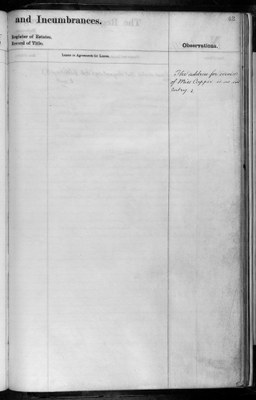 and Incumbrances.
Register of Estates,
Record of Title.
Leases or Agreements for Leases.
Observations.
The address for service
of Miss is as in
Entry